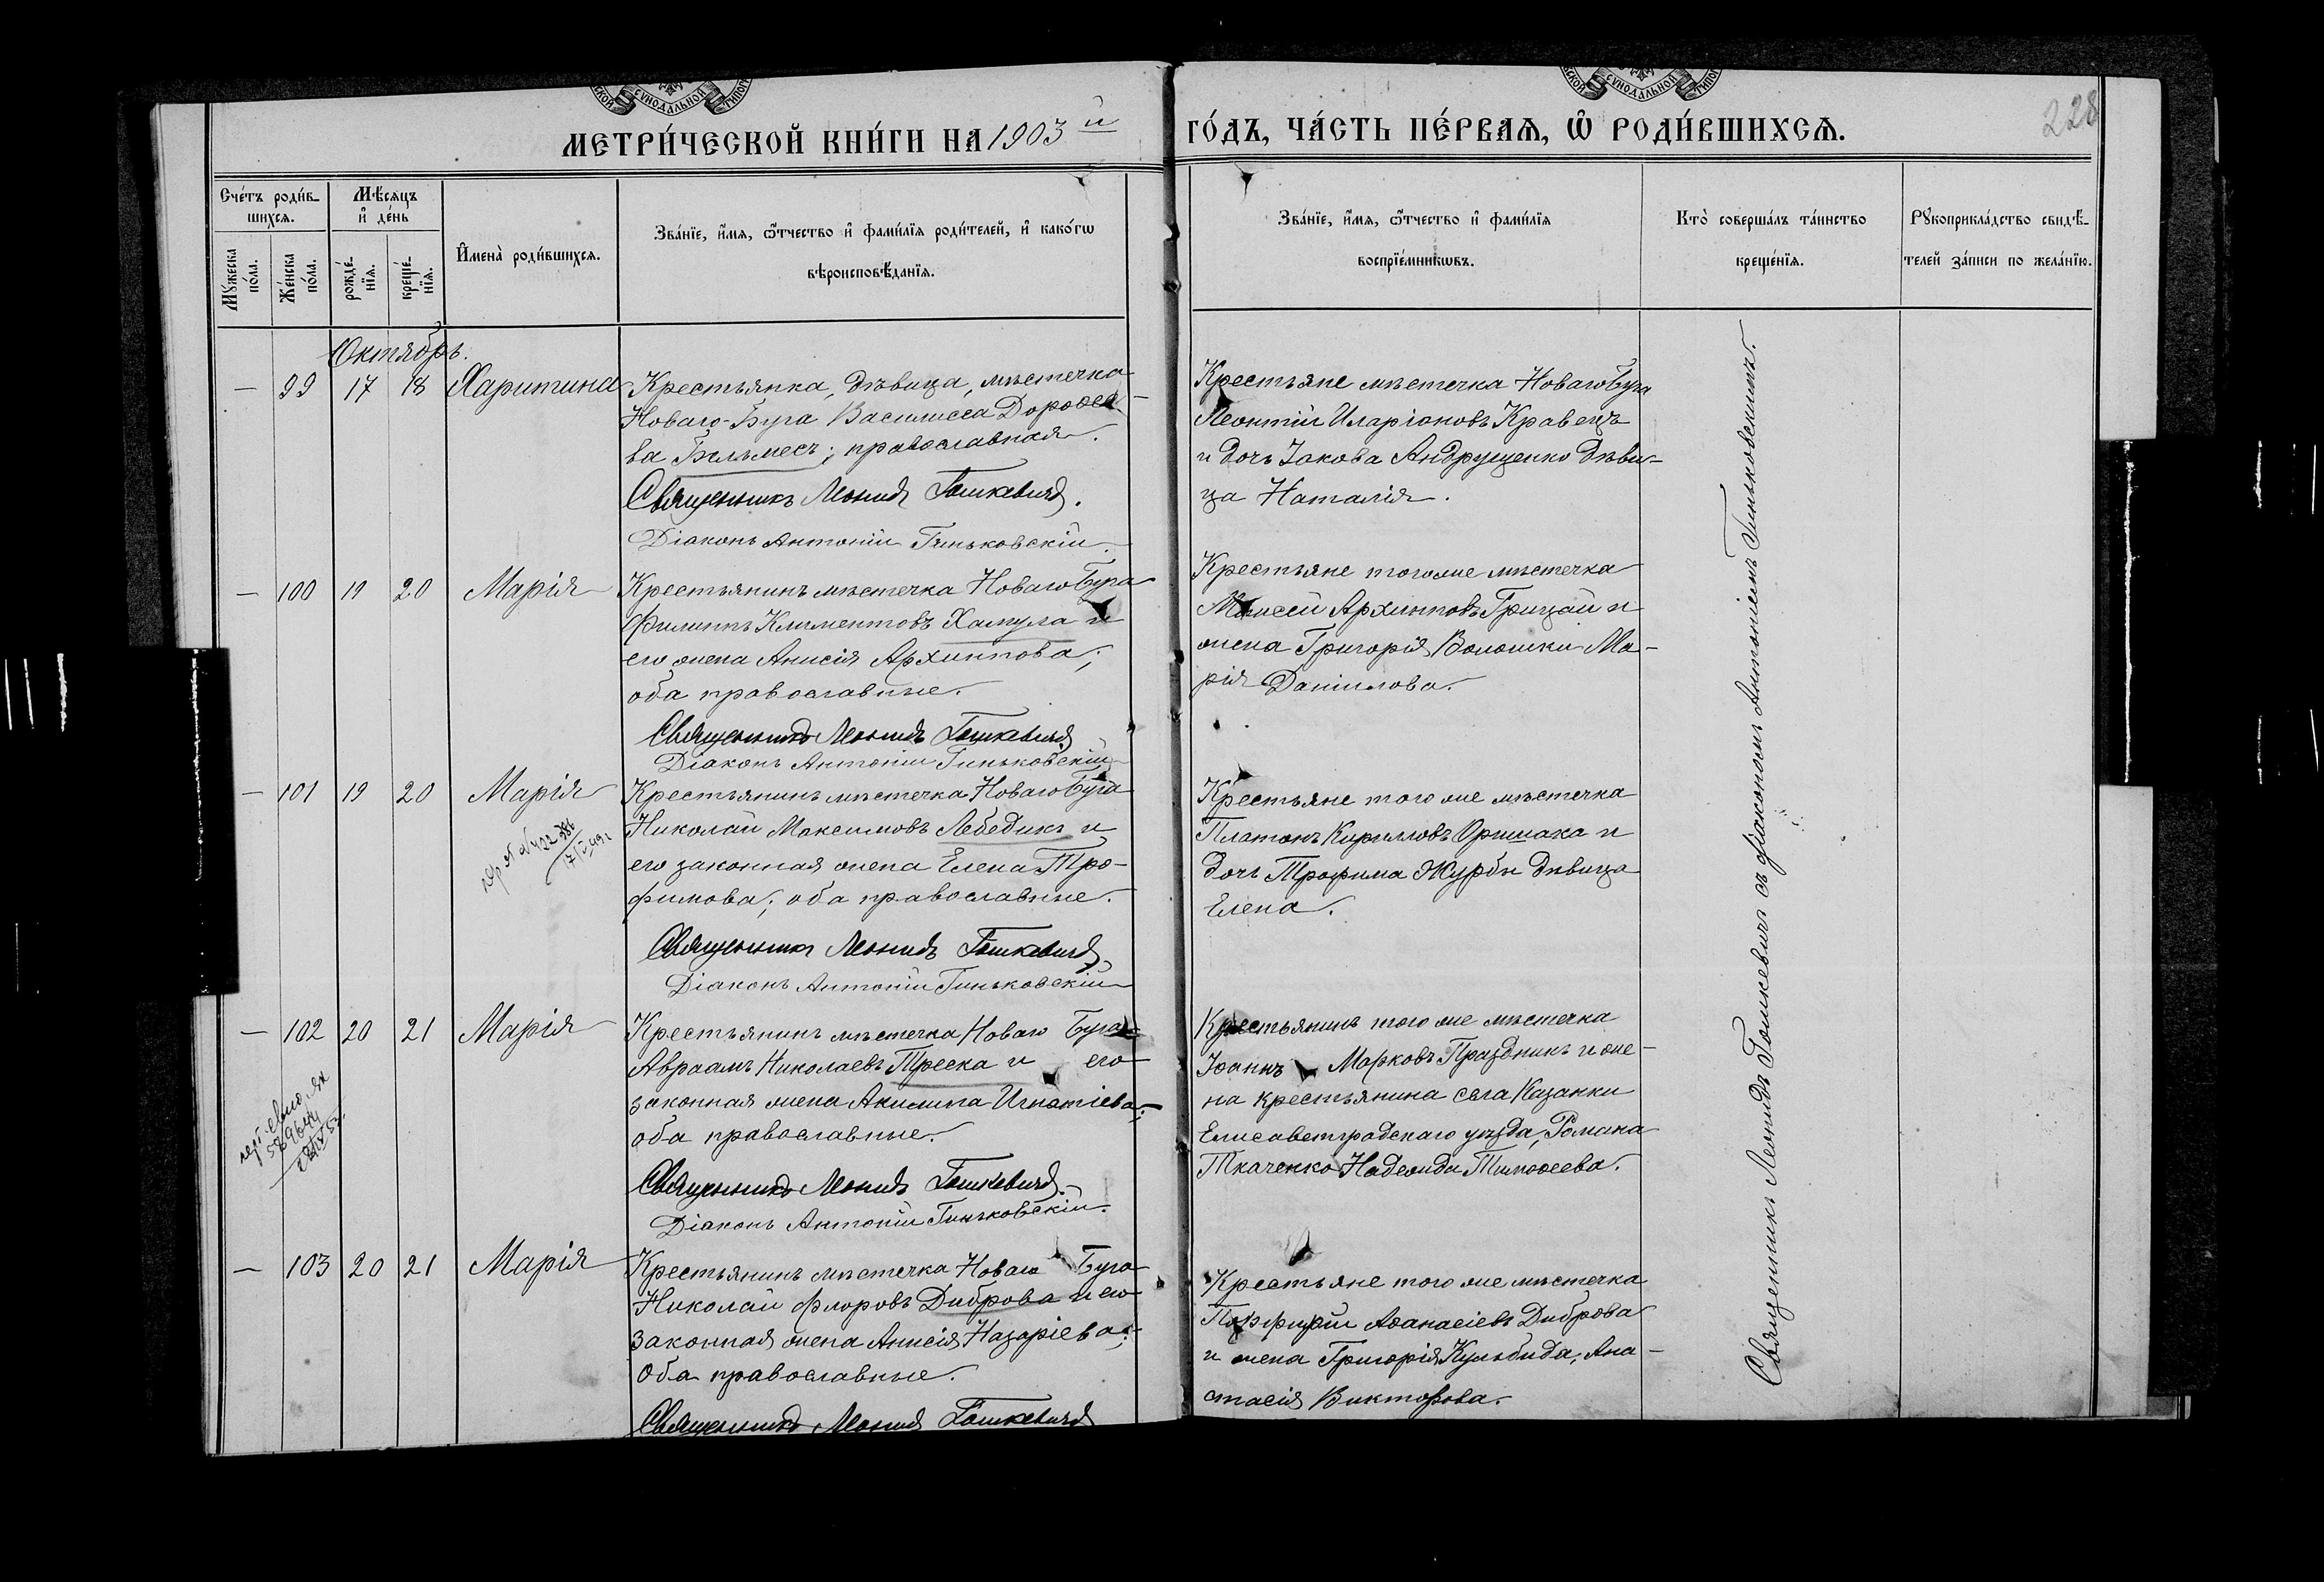 МЕТРИ́ЧЕСКОЙ КНИ́ГИ НА 1903 й
ГО́ДЪ, ЧА́СТЬ ПЕ́РВАЯ, Ѽ РОДИ́ВШИХСЯ.
228
Сче́тъ роди́в-
шихся.
Мѣ́сяцъ
и҆ де́нь
Мꙋ́жеска
по́ла.
Же́нска
по́ла.
рожде́-
нїя.
креще́-
нїя.
И҆мена̀ роди́вшихся.
Зва́нїе, и҆́мя, ѻ҆́тчество и҆ фами́лїя роди́телей, и҆ како́гѡ
вѣроисповѣ́данїя.
Зва́нїе, и҆́мя, ѻ҆́тчество и҆ фами́лїя
воспрїе́мникѡвъ.
Кто̀ соверша́лъ та́инство
креще́нїя.
Рꙋкоприкла́дство свидѣ́-
телей за́писи по жела́нїю.
Октябрь.
— 99 17 18 Харитина
Крестьянка, дѣвица, мѣстечка
Новаго-Буга Василисса Дороѳее-
ва Бельмесъ; православная.
Священникъ Леонидъ Гошкевичъ.
Діаконъ Антоній Гиньковскій.
Крестьяне мѣстечка Новаго Буга
Леонтій Иларіоновъ Кравецъ
и дочь Іакова Андрущенко дѣви-
ца Наталія.
— 100 19 20 Марія
Крестьянинъ мѣстечка Новаго Буга
Филиппъ Климентовъ Хамула и
его жена Анисія Архиппова;
оба православные.
Священникъ Леонидъ Гошкевичъ
Діаконъ Антоній Гиньковскій
Крестьяне тогоже мѣстечка
Моисей Архипповъ Грицай и
жена Григорія Волошки Ма-
рія Данилова.
— 101 19 20 Марія
Крестьянинъ мѣстечка Новаго Буга
Николай Максимовъ Лебедикъ и
его законная жена Елена Тро-
фимова; оба православные.
Священникъ Леонидъ Гошкевичъ
Діаконъ Антоній Гиньковскій
Крестьяне того же мѣстечка
Платонъ Кирилловъ Оришака и
дочь Трофима Журбы дѣвица
Елена.
— 102 20 21 Марія
Крестьянинъ мѣстечка Новаго Буга
Авраамъ Николаевъ Треска и его
законная жена Акилина Игнатіева;
оба православные.
Священникъ Леонидъ Гошкевичъ.
Діаконъ Антоній Гиньковскій.
Крестьянинъ того же мѣстечка
Іоаннъ Марковъ Праздникъ и же-
на крестьянина села Казанки
Елисаветградскаго уѣзда, Романа
Ткаченко Надежда Тимоѳеева.
— 103 20 21 Марія
Крестьянинъ мѣстечка Новаго Буга
Николай Флоровъ Диброва и его
законная жена Анисія Назаріева;
Оба православные.
Священникъ Леонидъ Гошкевичъ
Крестьяне того же мѣстечка
Порфирій Аѳанасіевъ Диброва
и жена Григорія Кульбида, Ана-
стасія Викторова.
Священникъ Леонидъ Гошкевичъ съ діакономъ Антоніемъ Гиньковскимъ.